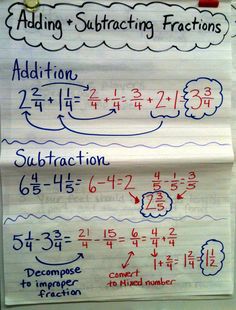 Adding + Subtracting Fractions
Addition
2 2/4 + 1 1/4 = 2/4 + 1/4 = 3/4 + 2 + 1 = 3 3/4
Subtraction
6 4/5 - 4 1/5 = 6 - 4 = 2 4/5 - 1/5 = 3/5
2 3/5
5 1/4 - 3 3/4 = 21/4 - 15/4 = 6/4 = 4/4 + 2/4
Decompose to improper fraction
convert to Mixed number
1 + 2/4 = 1 2/4 = 1 1/2